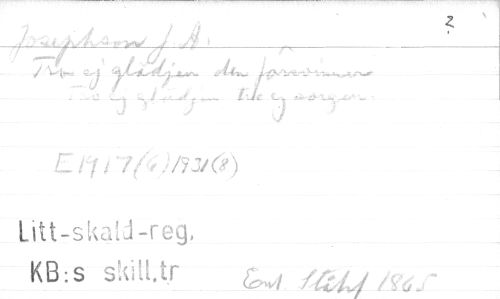 ?
Josephson J. A.
Tro ej glädjen den försvinner
Tro ej glädjen tro ej sorgen.
E1917(6)1931(8)
Litt-skald-reg.
KB:s skill.tr
Enl. Ståhl 1865